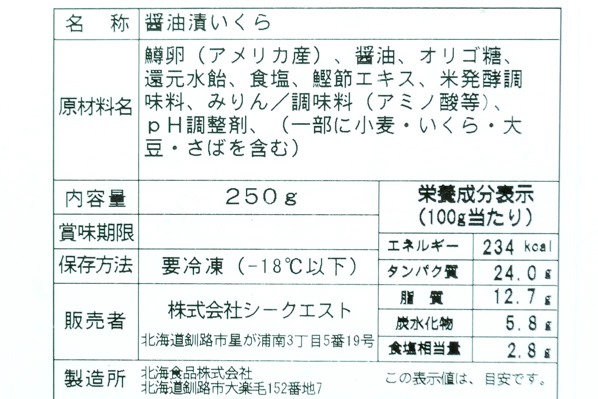 名 称 醤油漬いくら
原材料名
鱒卵（アメリカ産）、醤油、オリゴ糖、
還元水飴、食塩、鰹節エキス、米発酵調
味料、みりん／調味料（アミノ酸等）、
ｐＨ調整剤、（一部に小麦・いくら・大
豆・さばを含む）
内容量 250ｇ
賞味期限
保存方法 要冷凍（-18℃以下）
販売者 株式会社シークエスト
北海道釧路市星が浦南3丁目5番19号
栄養成分表示
（100g当たり）
エネルギー 234 kcal
タンパク質 24.0 g
脂 質 12.7 g
炭水化物 5.8 g
食塩相当量 2.8 g
製造所 北海食品株式会社
北海道釧路市大楽毛152番地7
この表示値は、目安です。